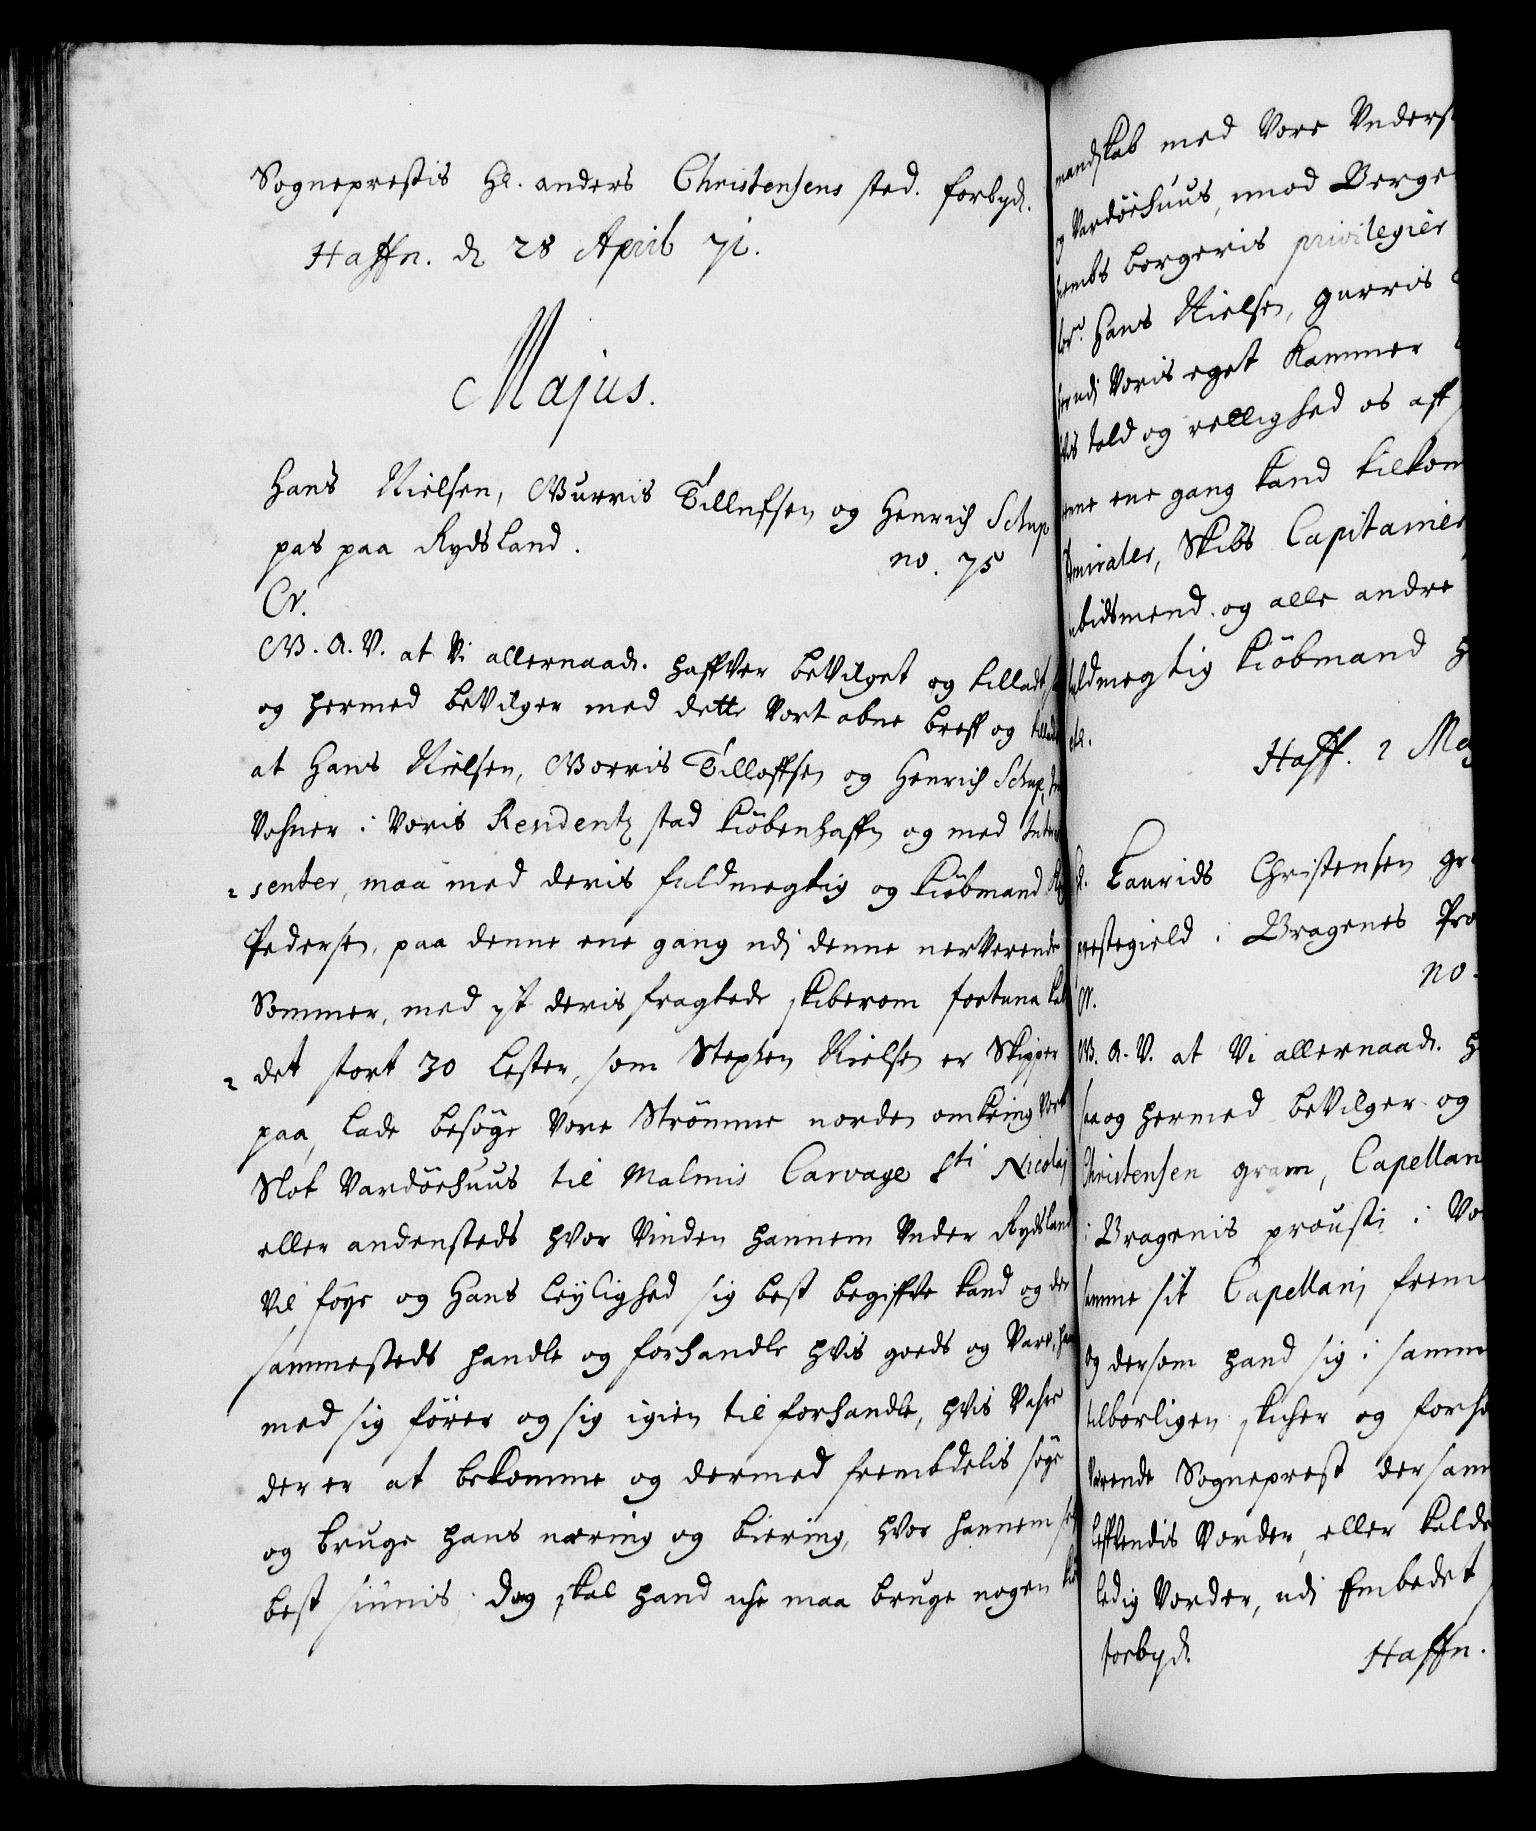 Sogneprestis Hr. anders Christensens sted. forbyd.
Haffn. d 28 April 71.
Majus.
Hans Nielsen, Murris Tillufsen og Henrich Schup
pas paa Rydsland.
no. 75
Cr.
G. A. V. at Vi allernaad. haffver beVilget og tilladt
og hermed beVilger med dette Vort abne breff og
at Hans Nielsen, Morris Tilloffsen og Henrich Schup,
Vohner i Voris Residentz stad Kiöbenhaffn og med
senter, maa med deris fuldmegtig og Kiöbmand
Pedersen, paa denne ene gang udj denne nerVerende
Sommer, med it deris fragtede skiberom fortuna kal
det stort 30 Lester, som Stephen Nielsen er Skipper
paa, lade besöge Vore Strömme norden omkring Vort
Slot Vardöehuus til Malmis Carvage Sti Nicolaj
eller andensteds hVor Vinden hannem Vnder Rydsland
Vil föye og Hans leylighed sig best begiffve kand og der
sammesteds handle og forhandle hVis goeds og Vare, hand
med sig förer og sig igien til forhandle, hVis Vahre
der er at bekomme og dermed frembdelis söge
og bruge hans næring og biering, hVor hannem
best siunis. Dog skal hand iche maa bruge nogen
mandskab med Vore Vnders
og Vardöehuus, imod Berge
hembs borgeris privilegier
Hans Nielsen, Murris
udj Voris eget Kammer
told og rettighed os aff
ene gang kand tilkom
Amiraler, Skibs Capitainer
og alle andre
fuldmegtig Kiöbmand
etc.
Haff. 2 May
Hr. Laurids Christensen gr
prestegield i Bragenes Pro
no.
Cr.
G. A. V. at Vi allernaad. h
saa og hermed beVilger og
Christensen gram, Capellan
i Bragenis prousti i Vo
samme sit Capellanj frem
Og dersom hand sig i samm
tilborligen skicher og forho
Værende Sogneprest dersam
Vorder, eller kalde
ledig Vorder, udj Embedet
forbyd.
Haffn.